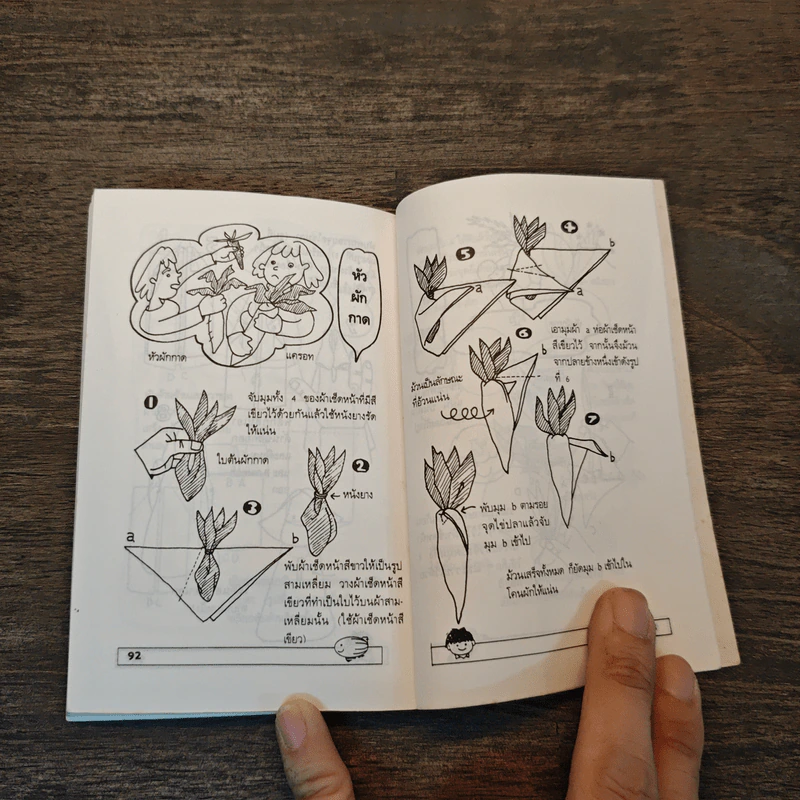 หัว
ผัก
กาด
หัวผักกาด
แครอท
1
จับมุมทั้ง 4 ของผ้าเช็ดหน้าที่มีสี
เขียวไว้ด้วยกันแล้วใช้หนังยางรัด
ให้แน่น
ใบต้นผักกาด
2
หนังยาง
3
a
b
พับผ้าเช็ดหน้าสีขาวให้เป็นรูป
สามเหลี่ยม วางผ้าเช็ดหน้าสี
เขียวที่ทำเป็นใบไว้บนผ้าสาม-
เหลี่ยมนั้น (ใช้ผ้าเช็ดหน้าสี
เขียว)
92
4
b
a
5
a
เอามุมผ้า a ห่อผ้าเช็ดหน้า
สีเขียวไว้ จากนั้นจึงม้วน
จากปลายข้างหนึ่งเข้าดังรูป
ที่ 6
6
b
ม้วนเป็นลักษณะ
ที่อ้วนแน่น
7
b
พับมุม b ตามรอย
จุดไข่ปลาแล้วจับ
มุม b เข้าไป
ม้วนเสร็จทั้งหมด ก็ยัดมุม b เข้าไปใน
โคนผักให้แน่น